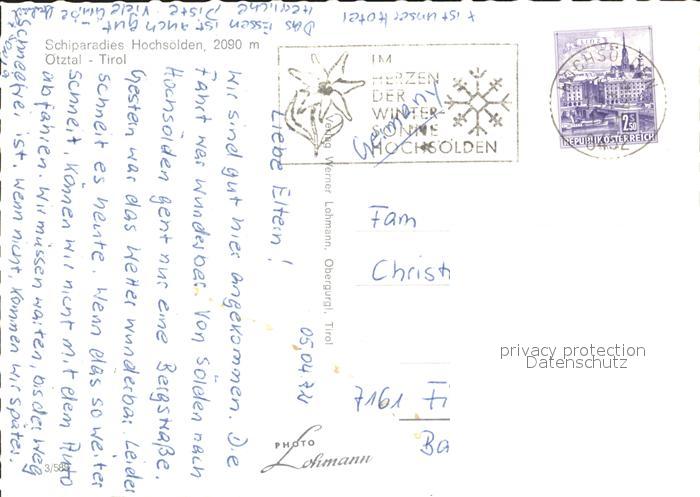 Schiparadies Hochsölden, 2090 m
Ötztal - Tirol
05.04.72
Liebe Eltern!
Wir sind gut hier angekommen. Die
Fahrt war wunderbar. Von Sölden nach
Hochsölden geht nur eine Bergstraße.
Gestern war das Wetter wunderbar. Leider
schneit es heute. Wenn das so weiter
schneit, können wir nicht mit dem Auto
abfahren. Wir müssen warten, bis der Weg
schneefrei ist. Wenn nicht kommen wir später.
Das Essen ist auch gut
herrliche Piste
Viele Grüße
x ist unser Hotel
IM
HERZEN
DER
WINTER-
SONNE
HOCHSÖLDEN
2 S 50
REPUBLIK ÖSTERREICH
Germany
Fam
Christ
7161 Fi
Ba
Verlag Werner Lohmann, Obergurgl, Tirol
PHOTO
Lohmann
3/588
privacy protection
Datenschutz